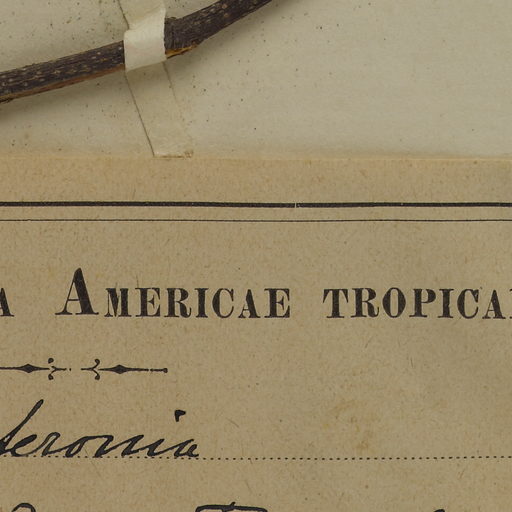 A AMERICAE TROPICA
teronia